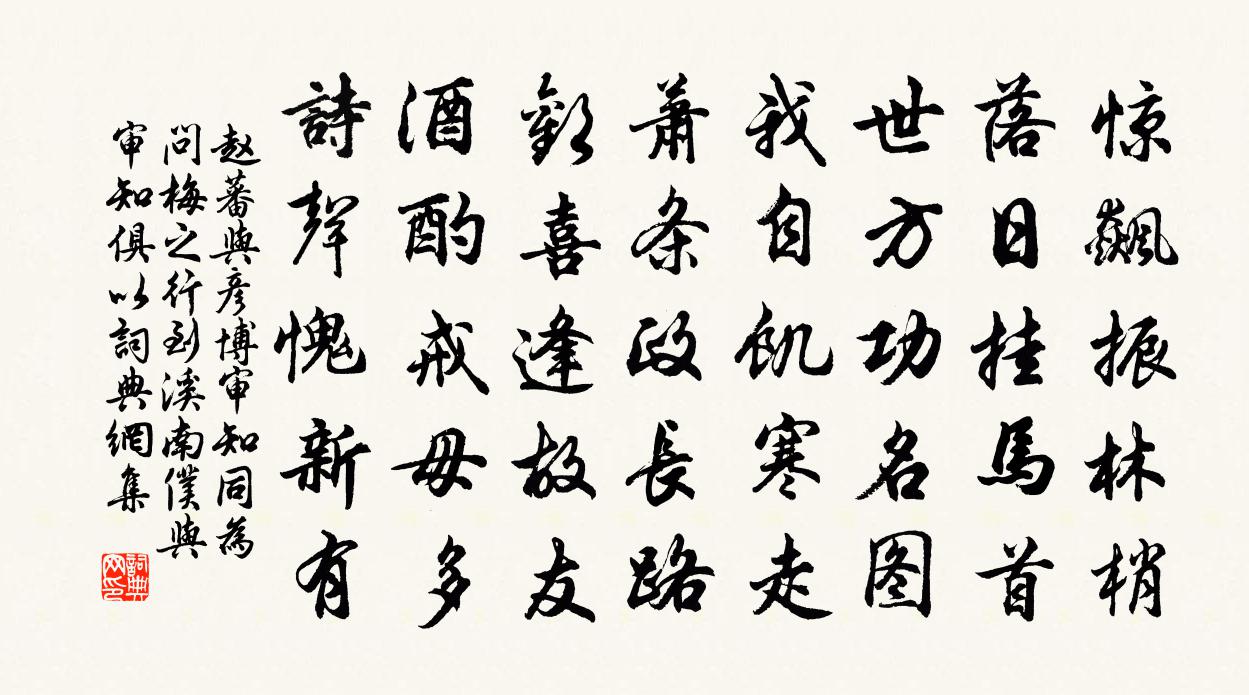 惊飆振林梢
落日挂馬首
世方功名图
我自飢寒走
蕭条政長路
歡喜逢故友
酒酌戒毋多
詩聲愧新有
赵蕃與彦博审知同為
问梅之行到溪南僕與
审知俱以詞典網集
詞典
网印